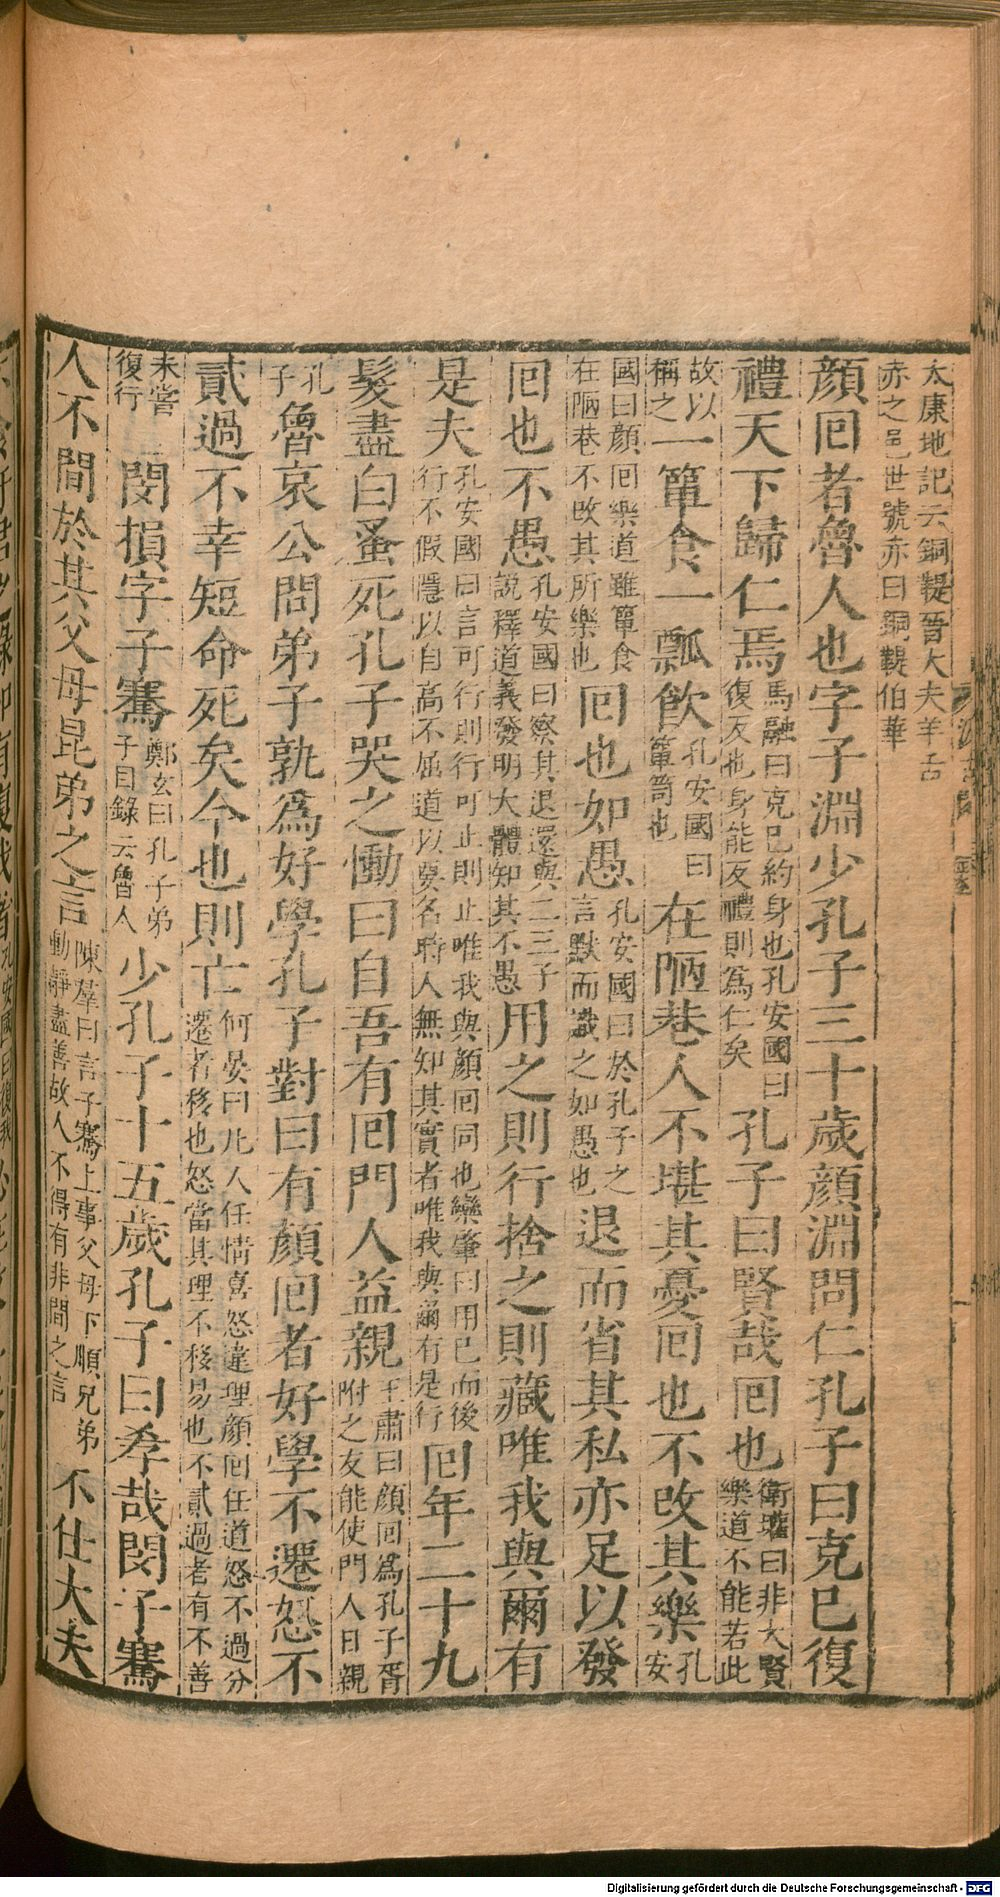 太康地記云銅鞮晉大夫羊舌赤之邑世號赤曰銅鞮伯華
顏囘者魯人也字子淵少孔子三十歲顏淵問仁孔子曰克己復
禮天下歸仁焉馬融曰克己約身也孔安國曰復反也身能反禮則爲仁矣孔子曰賢哉囘也衛瓘曰非大賢樂道不能若此
故以稱之一簞食一瓢飲孔安國曰簞笥也在陋巷人不堪其憂囘也不改其樂孔安
國曰顏囘樂道雖簞食在陋巷不改其所樂也囘也如愚孔安國曰於孔子之言默而識之如愚也退而省其私亦足以發
囘也不愚孔安國曰察其退還與二三子說釋道義發明大體知其不愚用之則行捨之則藏唯我與爾有
是夫孔安國曰言可行則行可止則止唯我與顏囘同也欒肇曰用己而後行不假隱以自高不屈道以要名時人無知其實者唯我與爾有是行囘年二十九
髮盡白蚤死孔子哭之慟曰自吾有囘門人益親王肅曰顏回爲孔子胥附之友能使門人日親
孔子魯哀公問弟子孰爲好學孔子對曰有顏囘者好學不遷怒不
貳過不幸短命死矣今也則亡何晏曰凡人任情喜怒違理顏囘任道怒不過分遷者移也怒當其理不移易也不貳過者有不善
未嘗復行閔損字子騫鄭玄曰孔子弟子目錄云魯人少孔子十五歲孔子曰孝哉閔子騫
人不間於其父母昆弟之言陳羣曰言子騫上事父母下順兄弟動靜盡善故人不得有非間之言不仕大夫
Digitalisierung gefördert durch die Deutsche Forschungsgemeinschaft - DFG